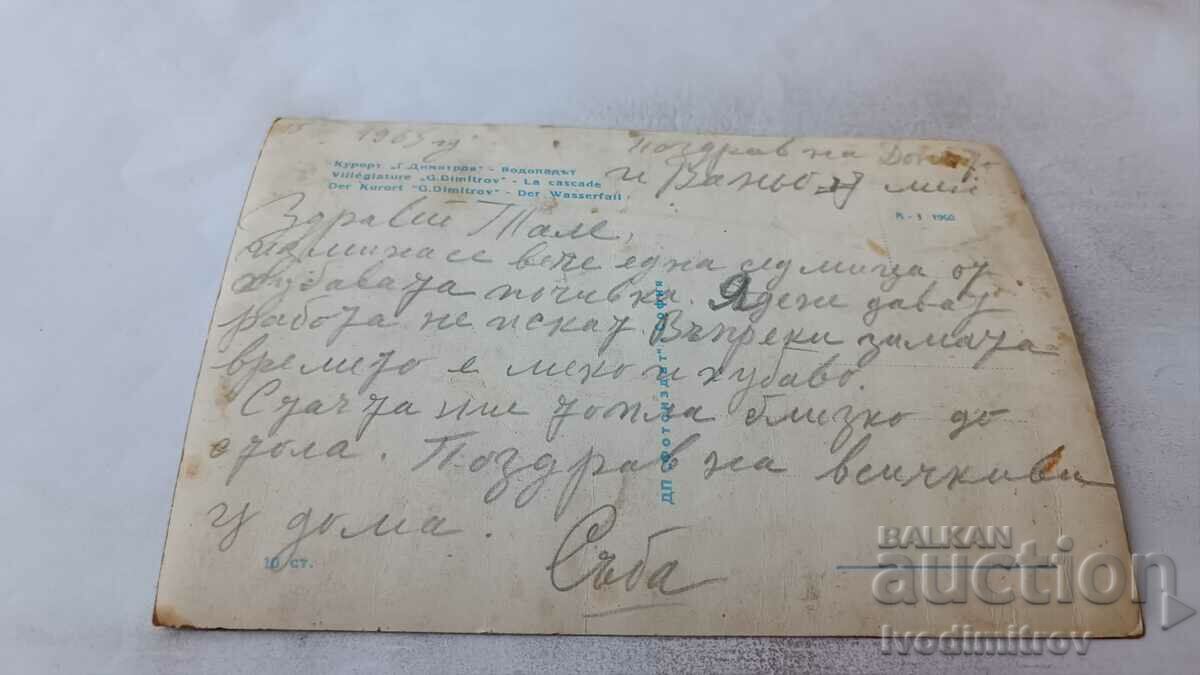 1963 г
Поздрав на
и от мен
Курорт „Г. Димитров" - Водопадът
Villégiature „G. Dimitrov" - La cascade
Der Kurort "G. Dimitrov" - Der Wasserfall
К - 1 1960
Здравей Тале,
измина се вече една седмица от
хубавата почивка. Ядене дават
работа не искат. Въпреки зимата
времето е меко и хубаво.
Стаята ни топла близко до
стола. Поздрав на всички
у дома.
Съба
ДП „Фотоиздат" София
10 ст.
BALKAN
auction
Ivodimitrov